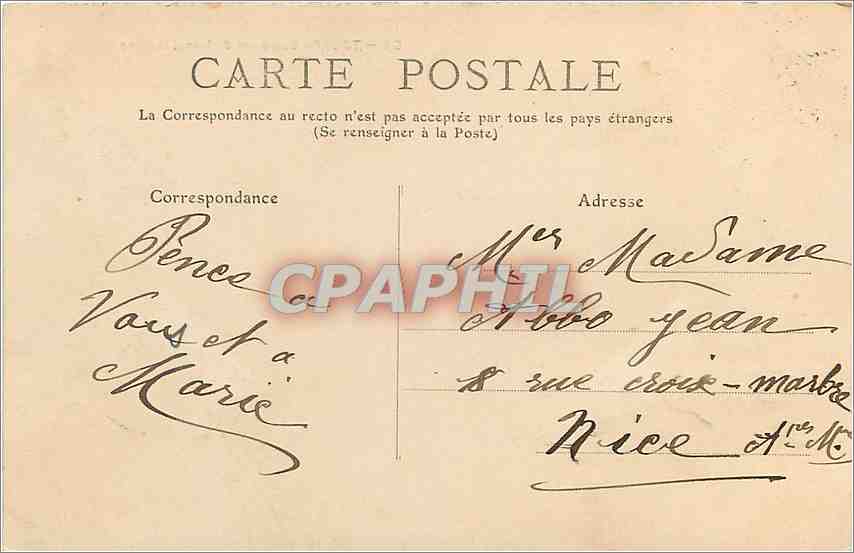 CARTE POSTALE
La Correspondance au recto n'est pas acceptée par tous les pays étrangers
(Se renseigner à la Poste)
Correspondance
Adresse
Pence a
Vous et a
Marie
Mer Madame
Abbo jean
8 rue croix-marbre
Nice A-res Mes
CPAPHIL